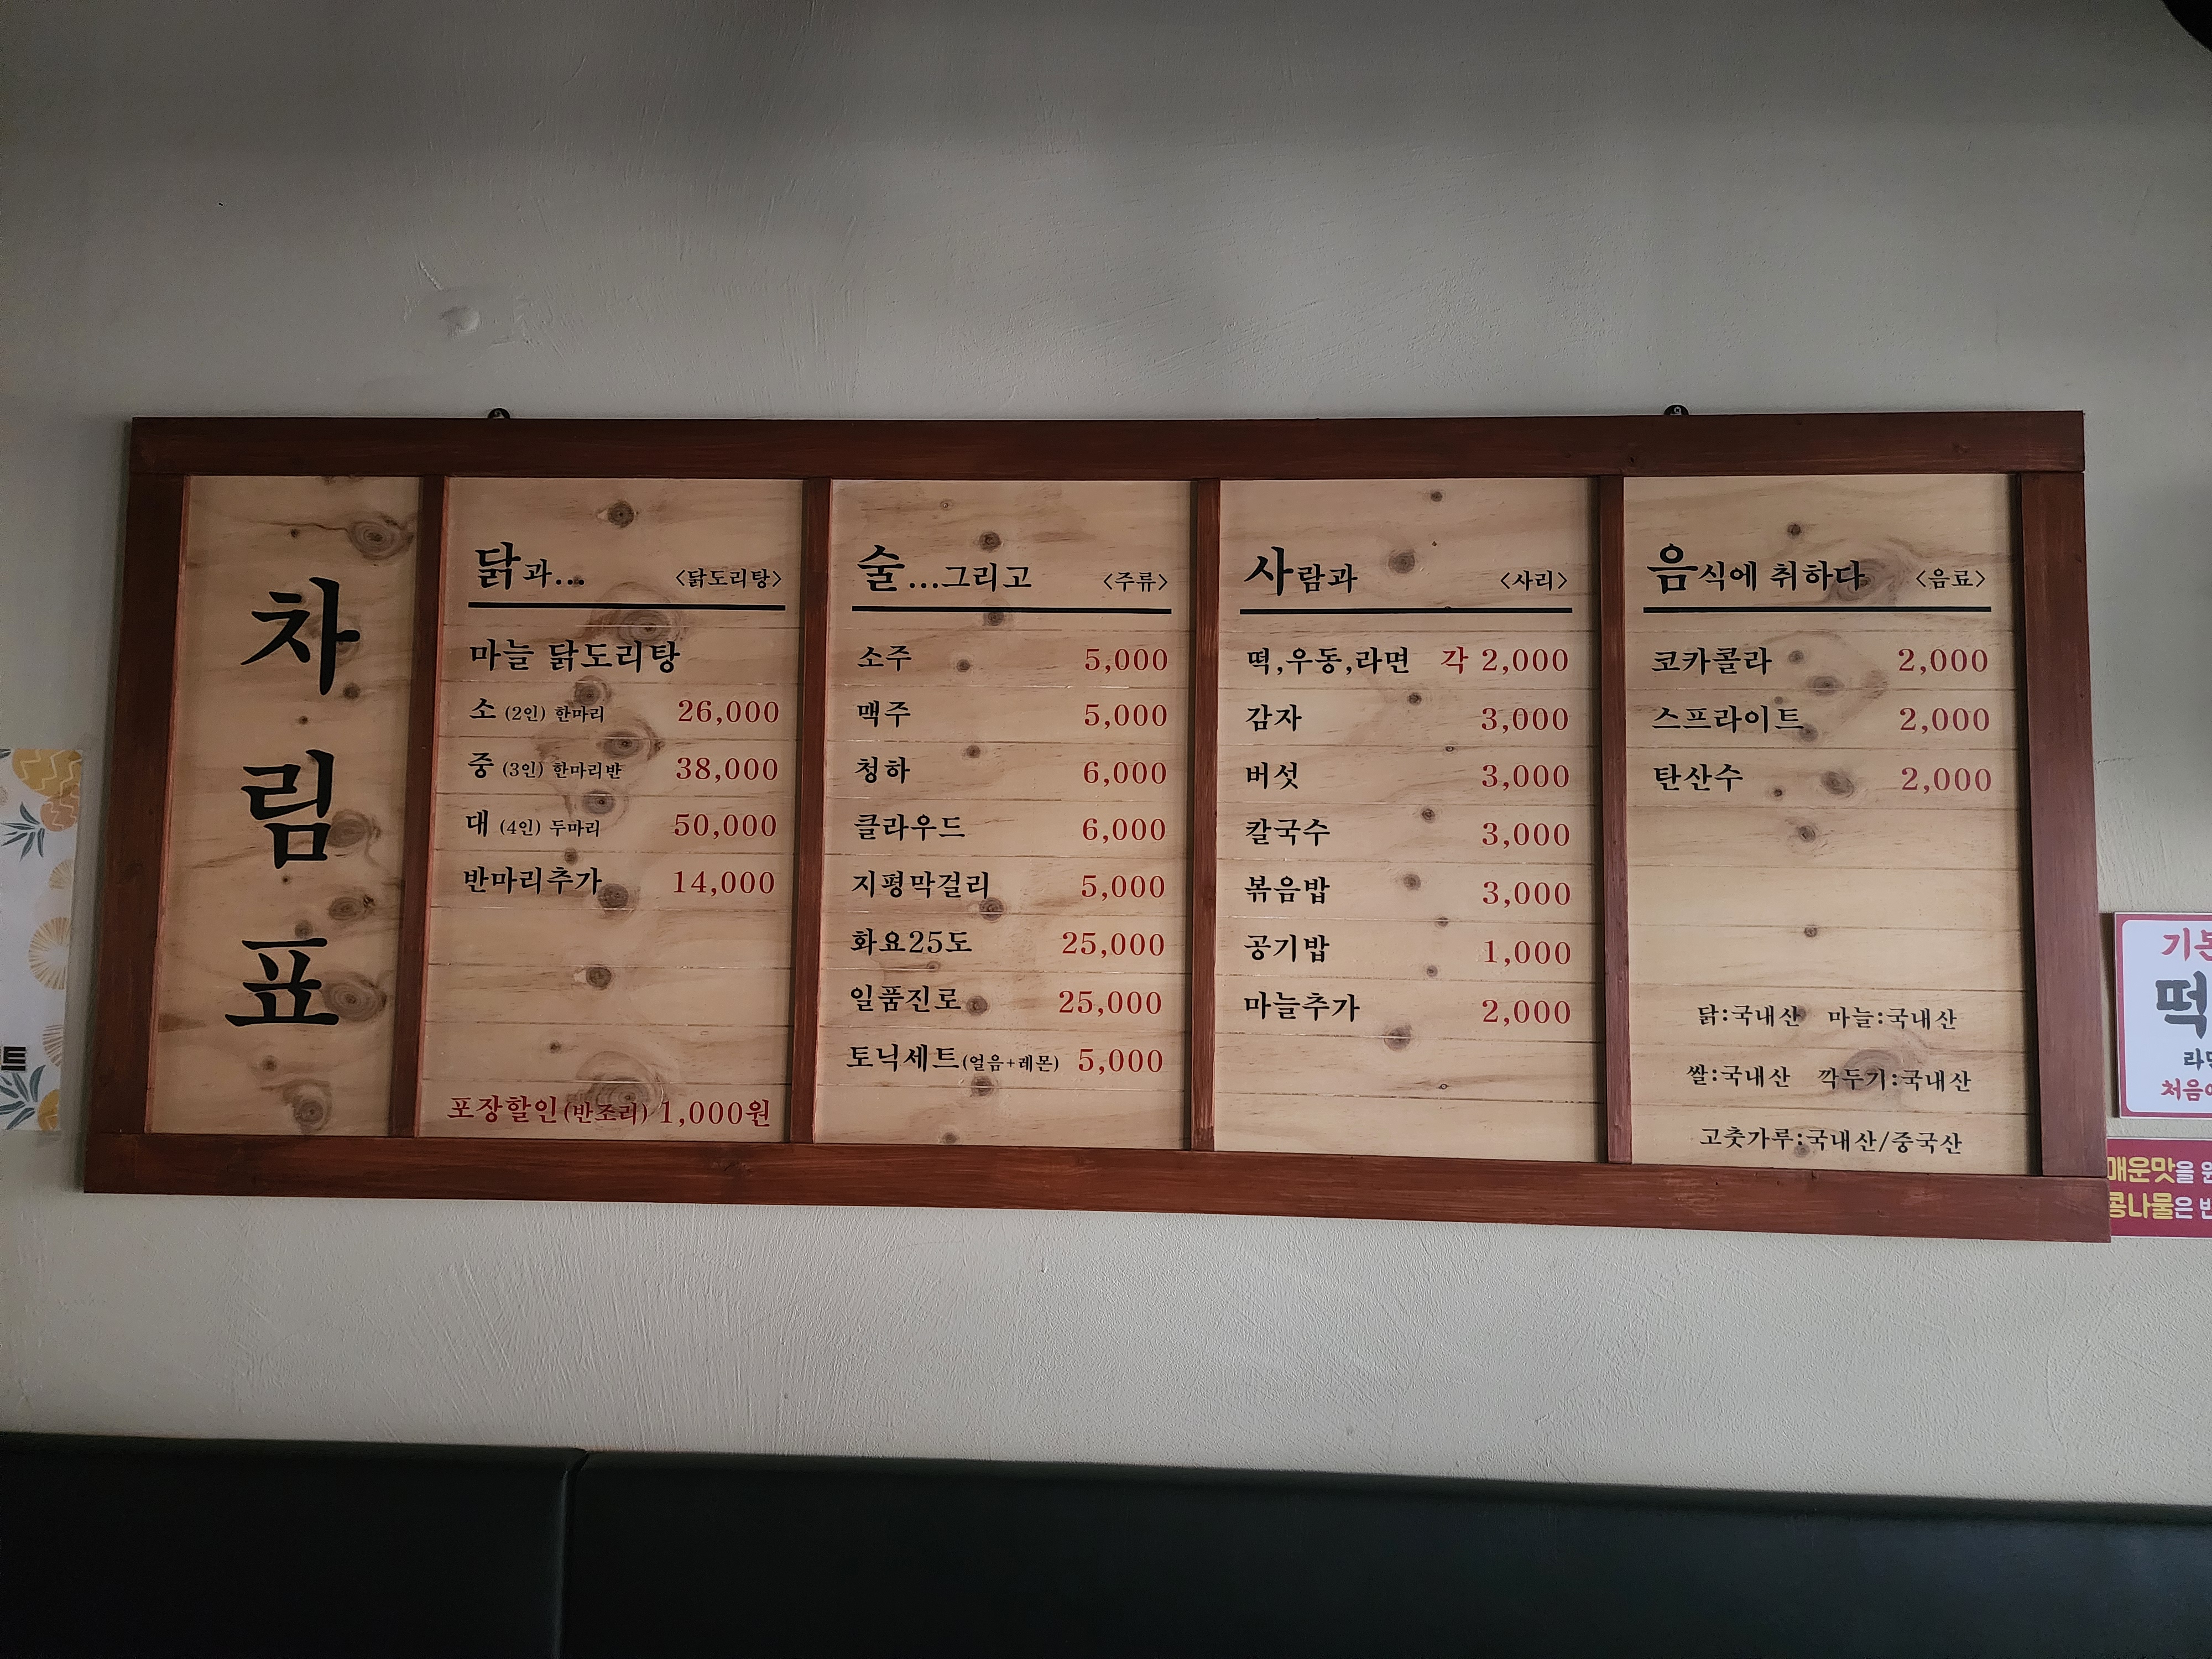 차
림
표
닭과... <닭도리탕>
마늘 닭도리탕
소 (2인) 한마리 26,000
중 (3인) 한마리반 38,000
대 (4인) 두마리 50,000
반마리추가 14,000
포장할인(반조리) 1,000원
술...그리고 <주류>
소주 5,000
맥주 5,000
청하 6,000
클라우드 6,000
지평막걸리 5,000
화요25도 25,000
일품진로 25,000
토닉세트(얼음+레몬) 5,000
사람과 <사리>
떡,우동,라면 각 2,000
감자 3,000
버섯 3,000
칼국수 3,000
볶음밥 3,000
공기밥 1,000
마늘추가 2,000
음식에 취하다 <음료>
코카콜라 2,000
스프라이트 2,000
탄산수 2,000
닭:국내산 마늘:국내산
쌀:국내산 깍두기:국내산
고춧가루:국내산/중국산
트
떡
매운맛을
콩나물은